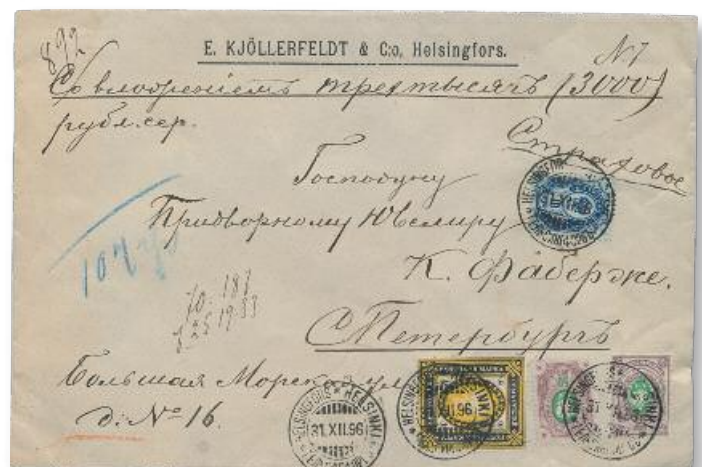 892
E. KJÖLLERFELDT & C:o, Helsingfors.
N 7
Со вложеніемъ трехтысячъ (3000)
рубл. сер.
Страховое
Господину
Придворному Ювелиру
К. Фаберже.
СПетербургъ
Большая Морская ул
д: № 16.
HELSINGFORS HELSINKI
31.XII.96
HELSINGFORS HELSINKI
XII.96
31.XII.96